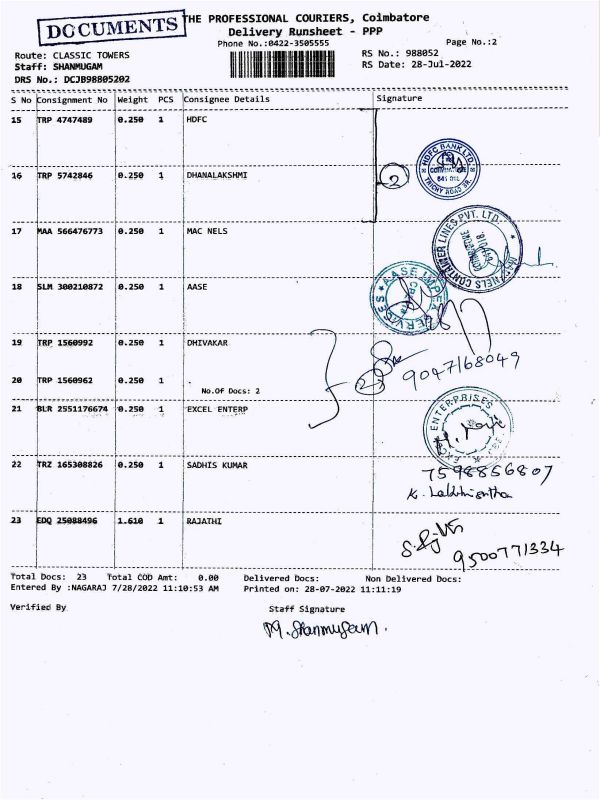 DOCUMENTS
THE PROFESSIONAL COURIERS, Coimbatore
Delivery Runsheet - PPP
Phone No.:0422-3505555
Page No.:2
Route: CLASSIC TOWERS
RS No.: 988052
Staff: SHANMUGAM
RS Date: 28-Jul-2022
DRS No.: DCJB98805202
S No Consignment No Weight PCS Consignee Details Signature
15 TRP 4747489 0.250 1 HDFC
HDFC BANK LTD.
TRICHY ROAD BR.
16 TRP 5742846 0.250 1 DHANALAKSHMI
2
17 MAA 566476773 0.250 1 MAC NELS
MAC NELS CONTAINER LINES PVT. LTD.
18 SLM 300210872 0.250 1 AASE
AASE IMPEX SERVICES
19 TRP 1560992 0.250 1 DHIVAKAR
9047168049
20 TRP 1560962 0.250 1
No.Of Docs: 2
2
21 BLR 2551176674 0.250 1 EXCEL ENTERP
ENTERPRISES
22 TRZ 165308826 0.250 1 SADHIS KUMAR
7598856807
23 EDQ 25088496 1.610 1 RAJATHI
9500771334
Total Docs: 23 Total COD Amt: 0.00 Delivered Docs: Non Delivered Docs:
Entered By :NAGARAJ 7/28/2022 11:10:53 AM Printed on: 28-07-2022 11:11:19
Verified By Staff Signature
M. Shanmugam.